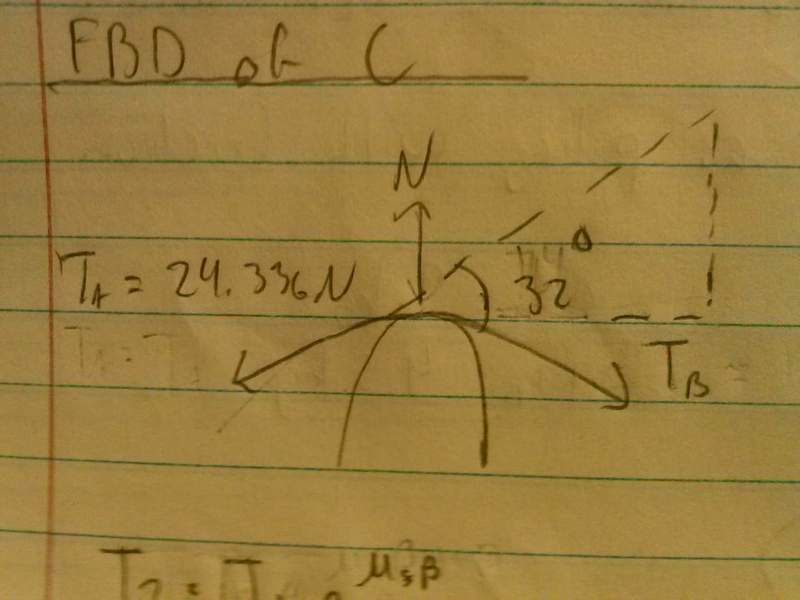 FBD of C
N
T_A = 24.336N
32°
T_B
T_2 = T
μ_sβ